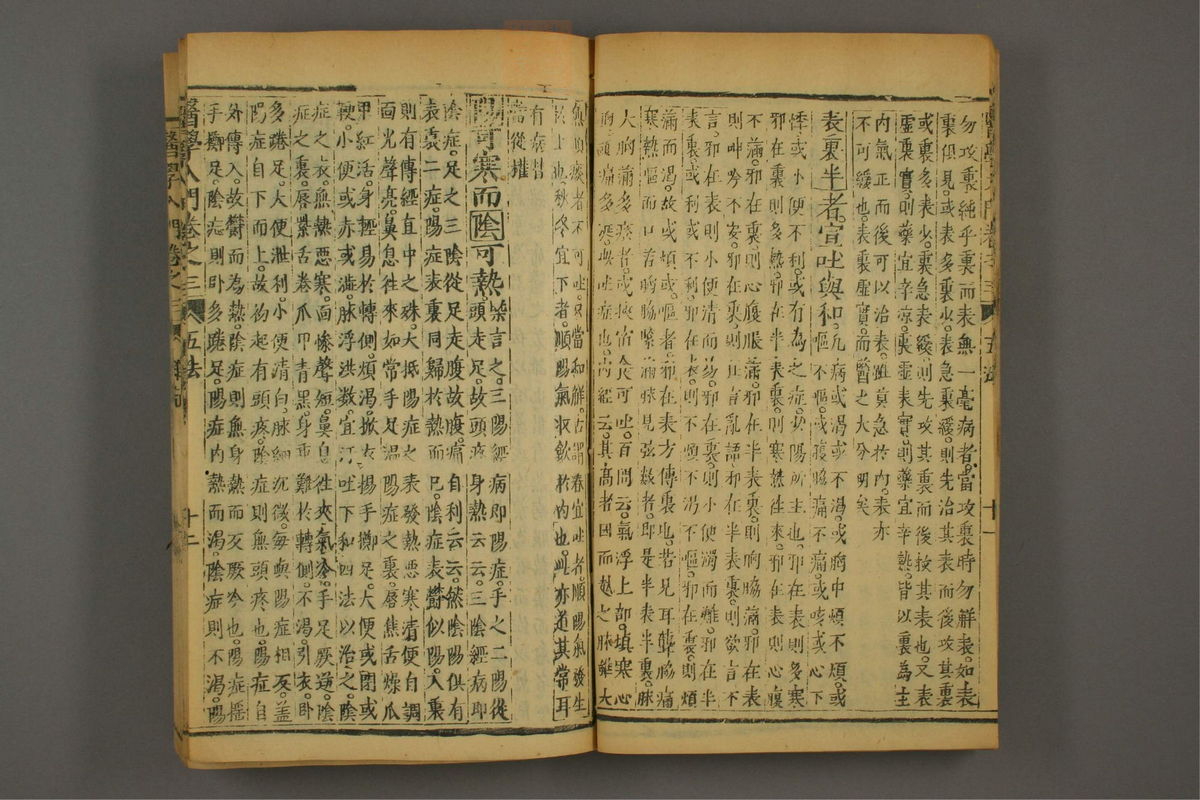 勿攻裏純乎裏而表無一毫病者當攻裏時勿解表如表
裏俱見或表多裏少表急裏緩則先治其表而後攻其裏
或裏多表少裏急表緩則先攻其裏而後救其表也又表
虛裏實則藥宜辛涼裏虛表實則藥宜辛熱皆以裏為主
內氣正而後可以治表雖莫急於內表亦
不可緩也表裏虛實而醫之大分明矣
表裏半者宣吐與和凡病或渴或不渴或胸中煩不煩或
嘔不嘔或腹脇痛不痛或咳或心下
悸或小便不利或有為之症少陽所主也邪在表則多寒
邪在裏則多熱邪在半表裏則寒熱往來邪在表則心腹
不滿邪在裏則心腹脹滿邪在半表裏則胸脇滿邪在表
則呻吟不安邪在裏則且昔亂語邪在半表裏則欲言不
言邪在表則小便清而易邪在裏則小便濁而難邪在半
表裏或利或不利邪在表則不煩不渴不嘔邪在裏則煩
滿而渴故或煩或嘔者邪在表方傳裏也若見耳聾脇痛
寒熱嘔而口苦胸脇緊滿脉見弦數者即是半表半裏脉
大胸滿多痰者或挾宿食可吐百問云氣浮上部填塞心
胸頭痛多涎此吐症也內經云其高者因而越之脉雖大
無頭痰者不可吐只當和解古謂春宜吐者順陽氣發生
於上也秋冬宜下者順陽氣收斂於內也此亦道其常耳
有病者
當從權
陽可寒而陰可熱槩言之三陽經病即陽症手之三陽從
頭走足故頭疼身熱云云三陰經病即
陰症足之三陰從足走腹故腹痛自利云云然陰陽俱有
表裏二症陽症表裏同歸於熱而已陰症表欝似陽入裏
則有傳經直中之殊大抵陽症之表發熱惡寒清便自調
面光聲亮鼻息往來如常手足溫陽症之裏唇焦舌燥爪
甲紅活身輕易於轉側煩渴掀衣揚手擲足大便或閉或
硬小便或赤或澁脉浮洪數宜汗吐下和四法以治之陰
症之表無熱惡寒面慘聲短鼻息往來氣冷手足厥逆陰
症之裏唇紫舌卷爪甲青黑身重難於轉側不渴引衣卧
多踡足大便泄利小便清白脉細沉微每與陽症相反蓋
陽症自下而上故始起有頭疼陰症則無頭疼也陽症自
外傳入故欝而為熱陰症則無身熱而反厥冷也陽症揺
手擲足陰症則卧多踡足陽症內熱而渴陰症則不渴陽
醫學入門卷之三 五法 十二